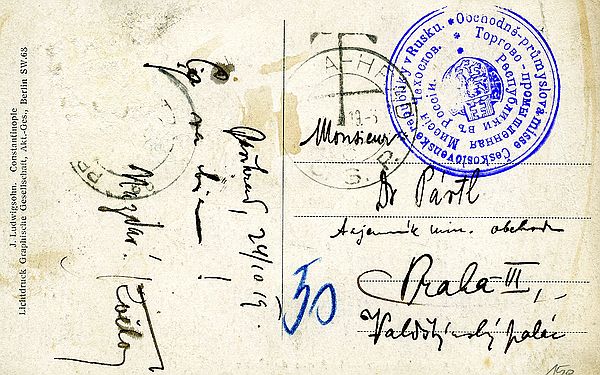 J. Ludwigsohn, Constantinople
Lichtdruck Graphische Gesellschaft, Akt.-Ges., Berlin SW.68
Ça va bien!
24/10 19
T
50
Obchodně-průmyslová misse Československé republiky v Rusku.
Торгово-промышленная Миссія Чехослов.
Республики въ Россіи
Monsieur
Dr Pártl
tajemník min. obchodu
Praha VI,
Valdštýnský palác
150